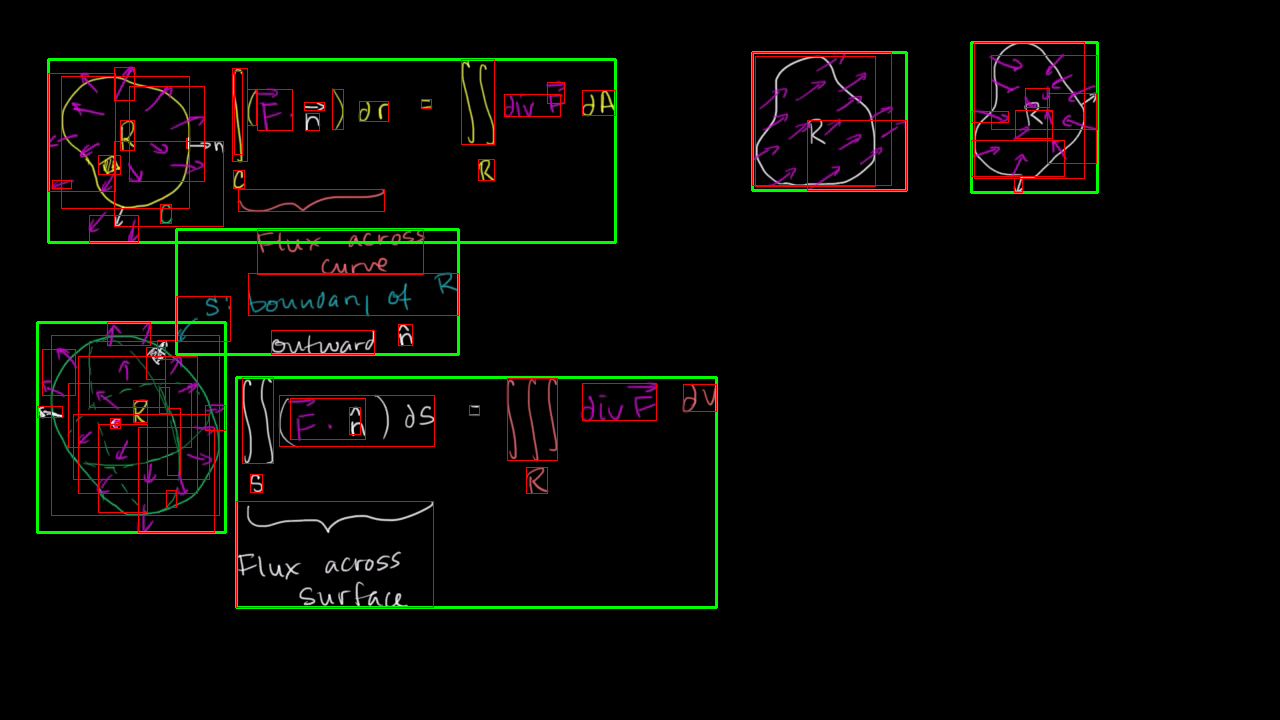 R n C
∫_C (F⃗ · n̂) dr = ∬_R div F⃗ dA
R
R
Flux across
curve
S: boundary of R
outward n̂
R n
∬_S (F⃗ · n̂) dS = ∭_R div F⃗ dV
Flux across
surface